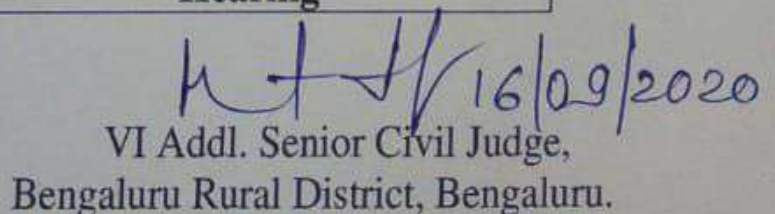 Hearing
16/09/2020
VI Addl. Senior Civil Judge,
Bengaluru Rural District, Bengaluru.